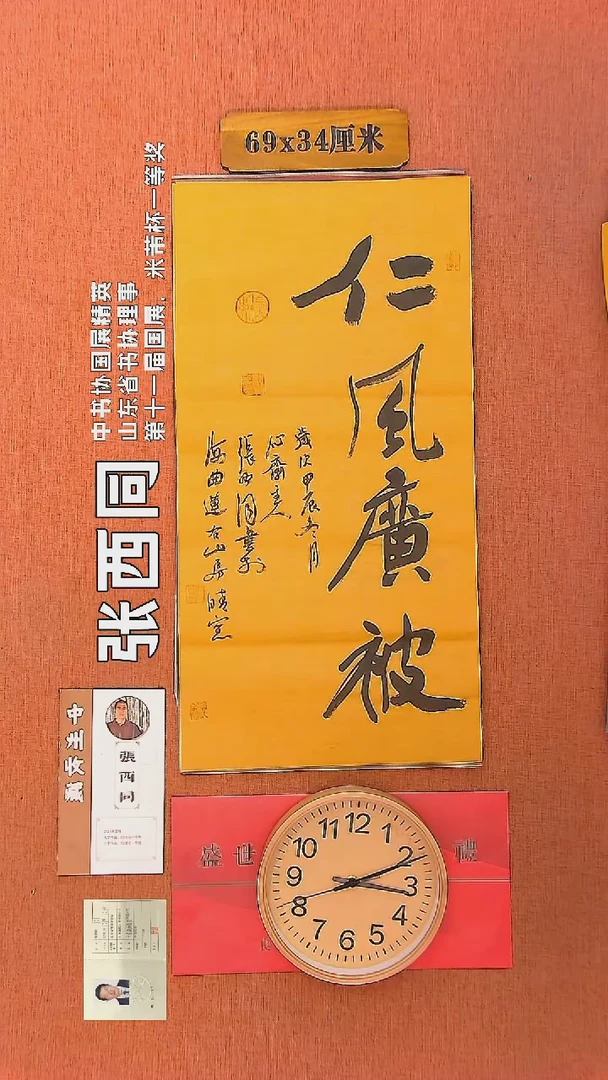 69x34厘米
仁風廣被
歲次甲辰冬月
心齋主人
張西同書於
海曲蓮山房晴窗
中书协国展精英
山东省书协理事
第十一届国展、米芾杯一等奖
张西同
張西同
盛世 禮
12
1
2
3
4
5
6
7
8
9
10
11